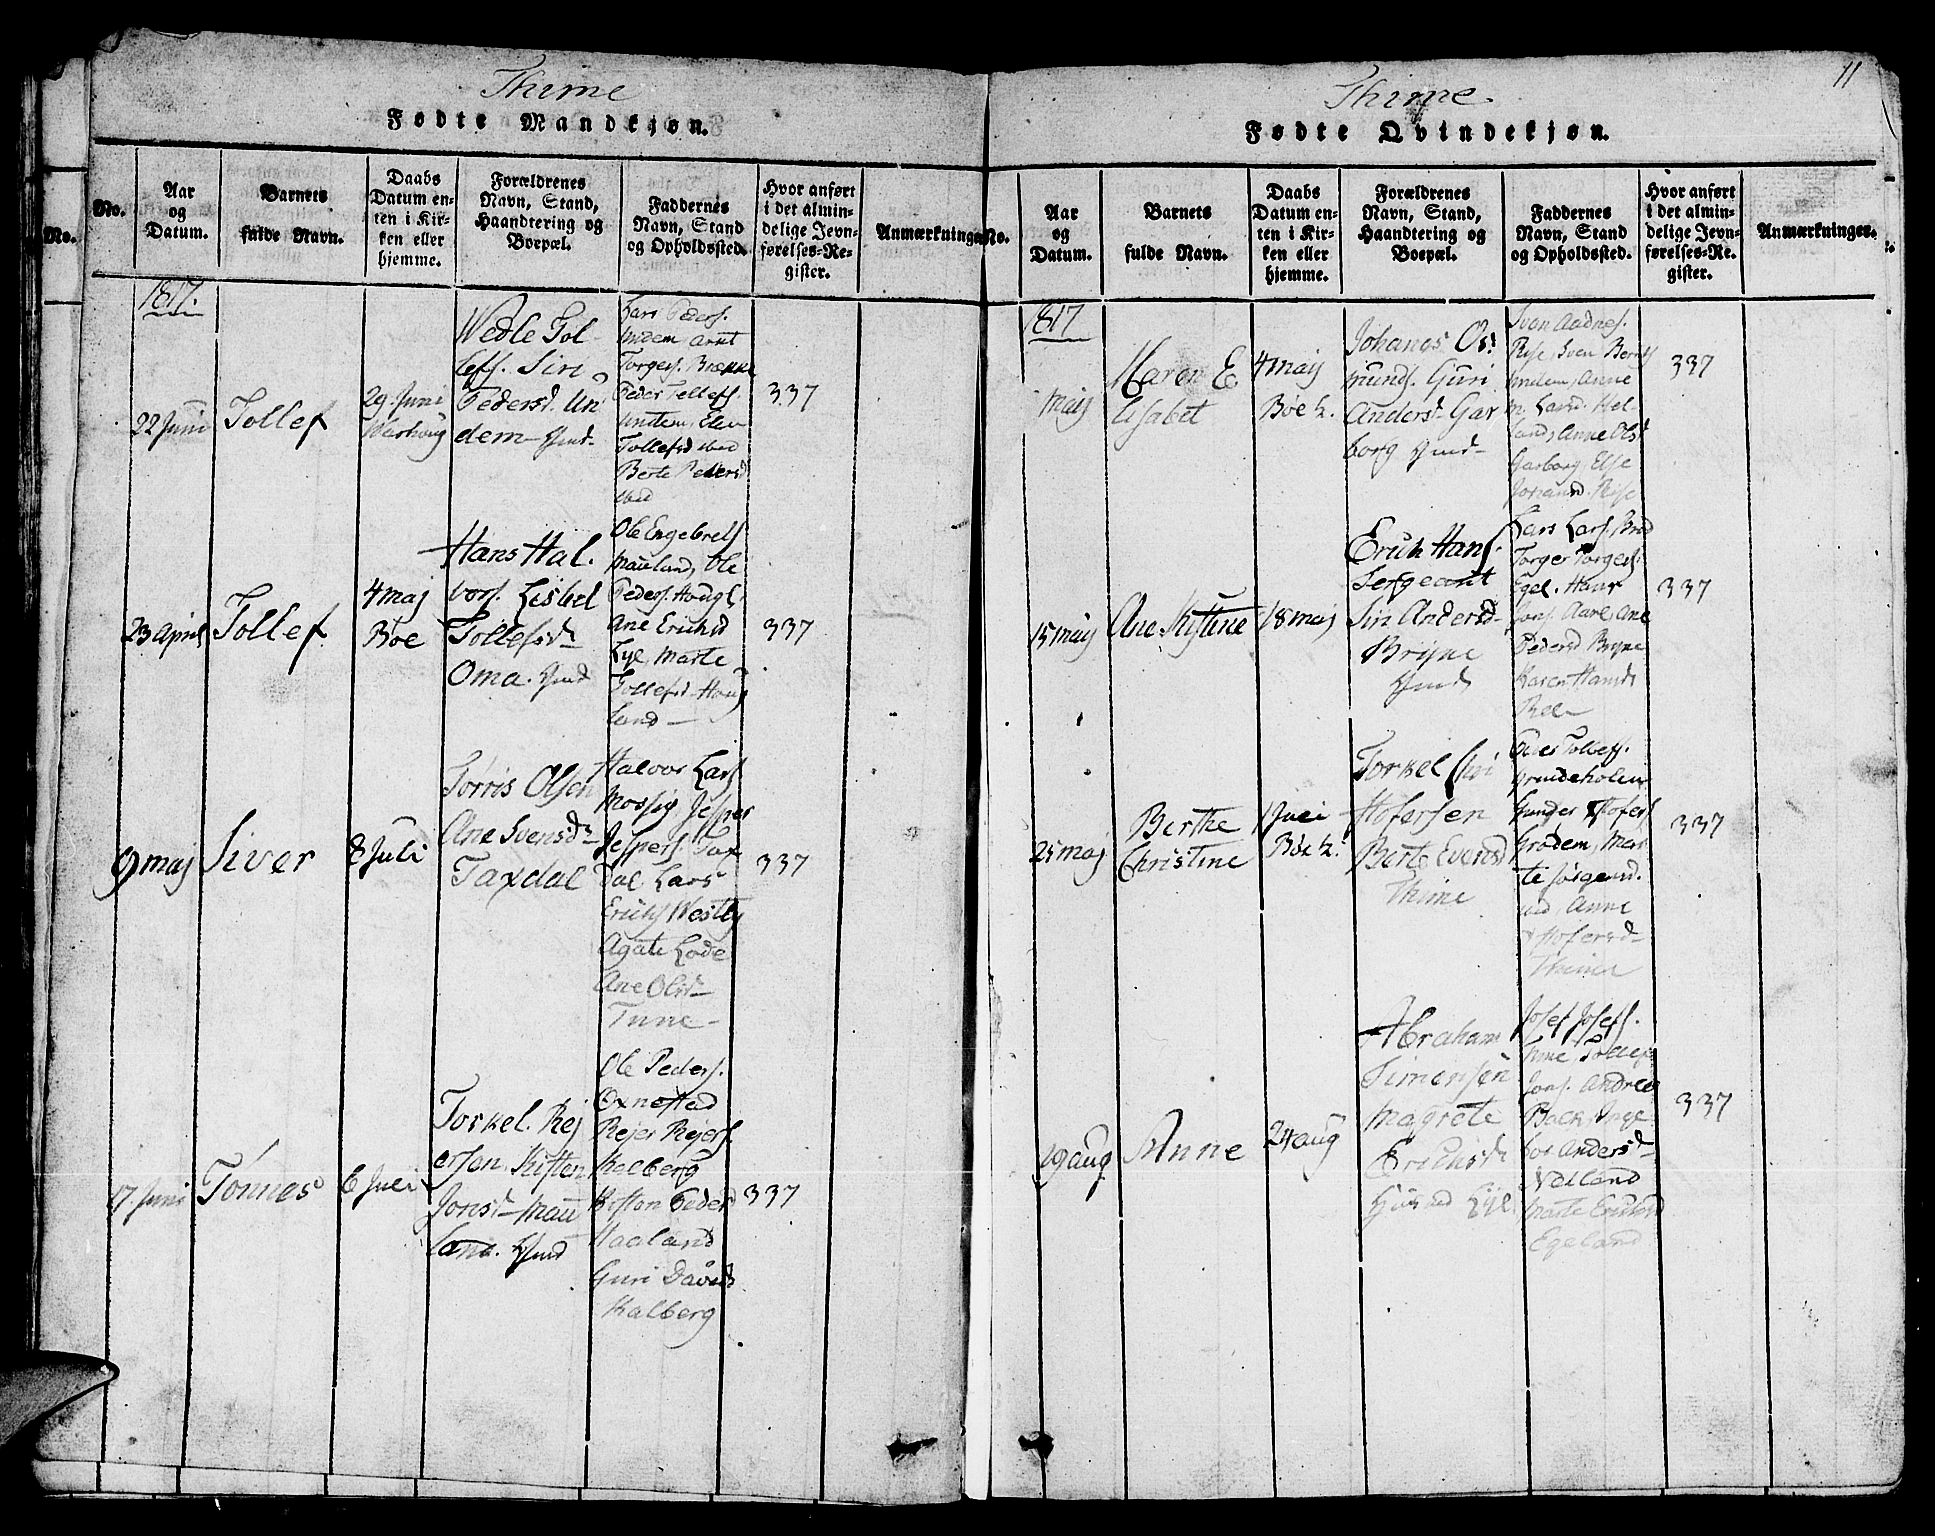 Thime
Fødte Mandkjøn.
No.
No.
Aar
og
Datum.
Barnets
fulde Navn.
Daabs
Datum en-
ten i Kir-
ken eller
hjemme.
Forældrenes
Navn, Stand,
Haandtering og
Boepæl.
Faddernes
Navn, Stand
og Opholdssted.
Hvor anført
i det almin-
delige Jevn-
førelses-Re-
gister.
Anmærkninger.
1817.
22 Juni
Tollef
29. Juni
Warhoug
Wedle Tol
lefs. Siri
Pedersd. Un
dem
Lars Peders.
undem Arnt
Torgers. Brække
Peder Tollefs.
undem, Elen
Tollefsd ibid
Berte Pedersd
ibid
337
23 April
Tollef
4 maj
Bøe
Hans Hal.
vors. Lisbet
Tollefsd
Oma.
Ole Engebrets
Maüland, Ole
Peders. Haugl.
Ane Erichsd
Lye, Marte
Tollefsd Haug
land
337
9 maj
Siver
8 Juli
Torris Olsen
Ane Svensd
Taxdal
Halvor Lars
Mossig Jesper
Jespers. Tax
dal Lars
Erichs Westly
Agate Lode
Ane Olsd
Tune
337
17 Juni
Tønnes
6 Juli
Torkel. Rej
ersen, Kisten
Jonsd Mau
land.
Ole Peders.
Oxnestad
Rejer Rejers
Kalberg
Kisten Peder
Haaland
Guri Davids
Kalberg
337
11
Thime
Fødte Qvindekjøn.
No.
Aar
og
Datum.
Barnets
fulde Navn.
Daabs
Datum en-
ten i Kir-
ken eller
hjemme.
Forældrenes
Navn, Stand,
Haandtering og
Boepæl.
Faddernes
Navn, Stand
og Opholdssted.
Hvor anført
i det almin-
delige Jevn-
førelses-Re-
gister.
Anmærkninger.
1817
maj
Maren E
lisabet
4 maj
Bøe k.
Johanes Os
munds. Guri
Andersd. Gar
borg
Sven Aadnes.
Rise, Sven Bernts
undem, Anne
Larsd. Hel
land, Anne Olsd
Garborg Else
Johansd. Rise
337
15 maj
Ane Kistine
18 maj
Erich Hans.
Sergeant
Siri Andersd
Bryne
Lars Lars.
Torger Torgers.
Egel. Hans
Jons. Aare, Ane
Pedersd Bryne
Karen Hansd
Ree
337
25 maj
Berthe
Christine
1 Juni
Bøe k.
Torkel Chri
stofersen
Berte Evensd
Thime
Peder Tollefs.
Grudeholen
Gunder Stofers
Grødem, Mar
te Sørgaard.
ibid, Anne
Stofersd
Thime
337
19 aug
Anne
24 aug
Abraham
Simensen
Magrete
Erichsd
Lye
Josef Josefs.
Lime Tollef
Jons. Andrea
Back, Inge
bor Andersd
Nedland
Marte Erichsd
Egeland
337